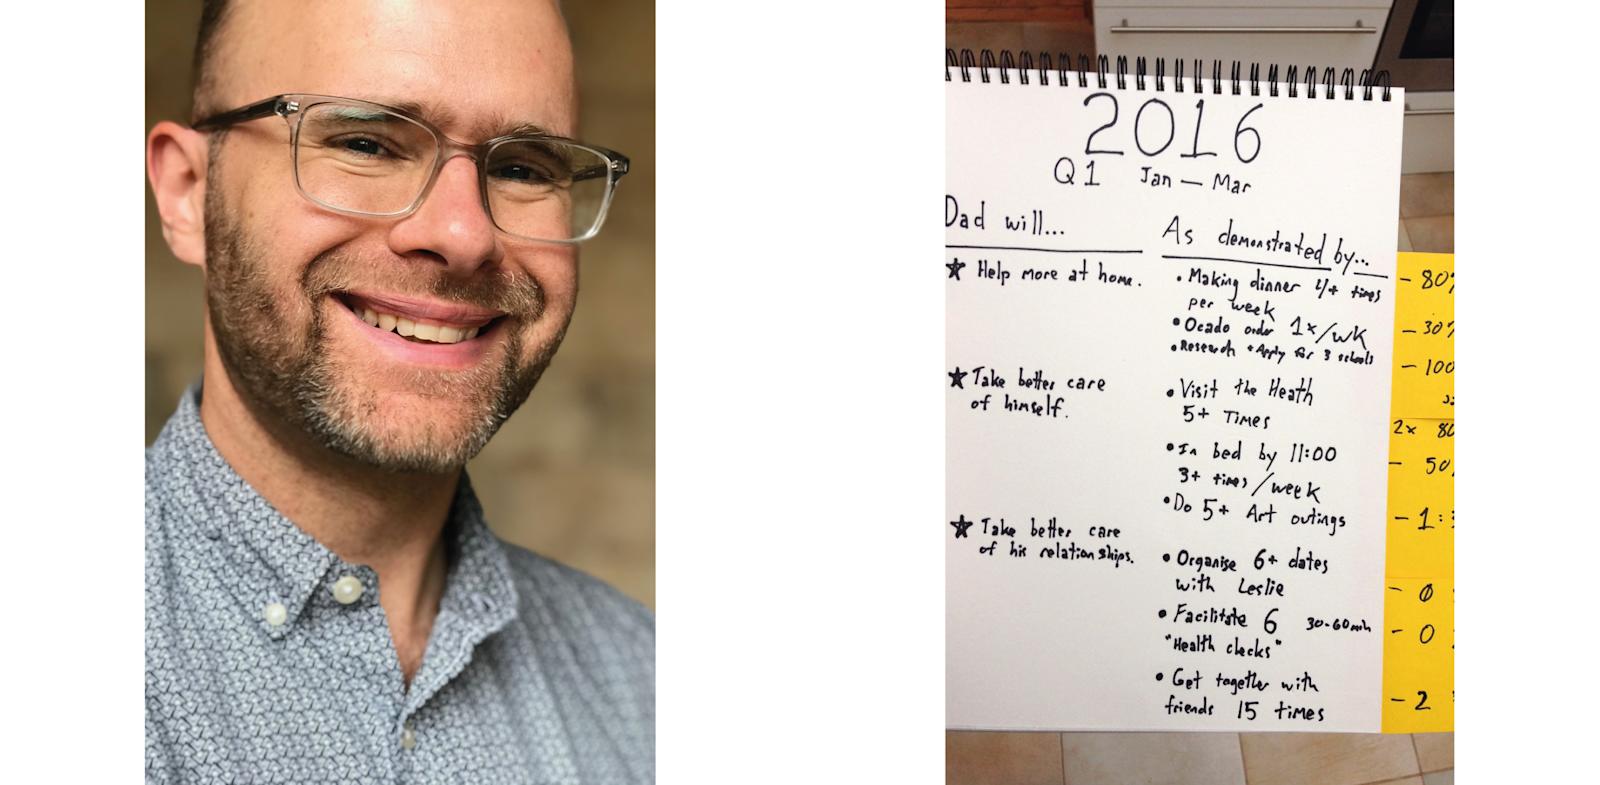 2016
Q1 Jan — Mar
Dad will...
★ Help more at home.
★ Take better care
of himself.
★ Take better care
of his relationships.
As demonstrated by...
• Making dinner 4+ times
per week
• Ocado order 1x/wk
• Research + Apply for 3 schools
• Visit the Heath
5+ Times
• In bed by 11:00
3+ times/week
• Do 5+ Art outings
• Organise 6+ dates
with Leslie
• Facilitate 6 30-60 min
"Health checks"
• Get together with
friends 15 times
- 80%
- 30%
- 100
2x 80
- 50
- 1:
- 0
- 0
- 2